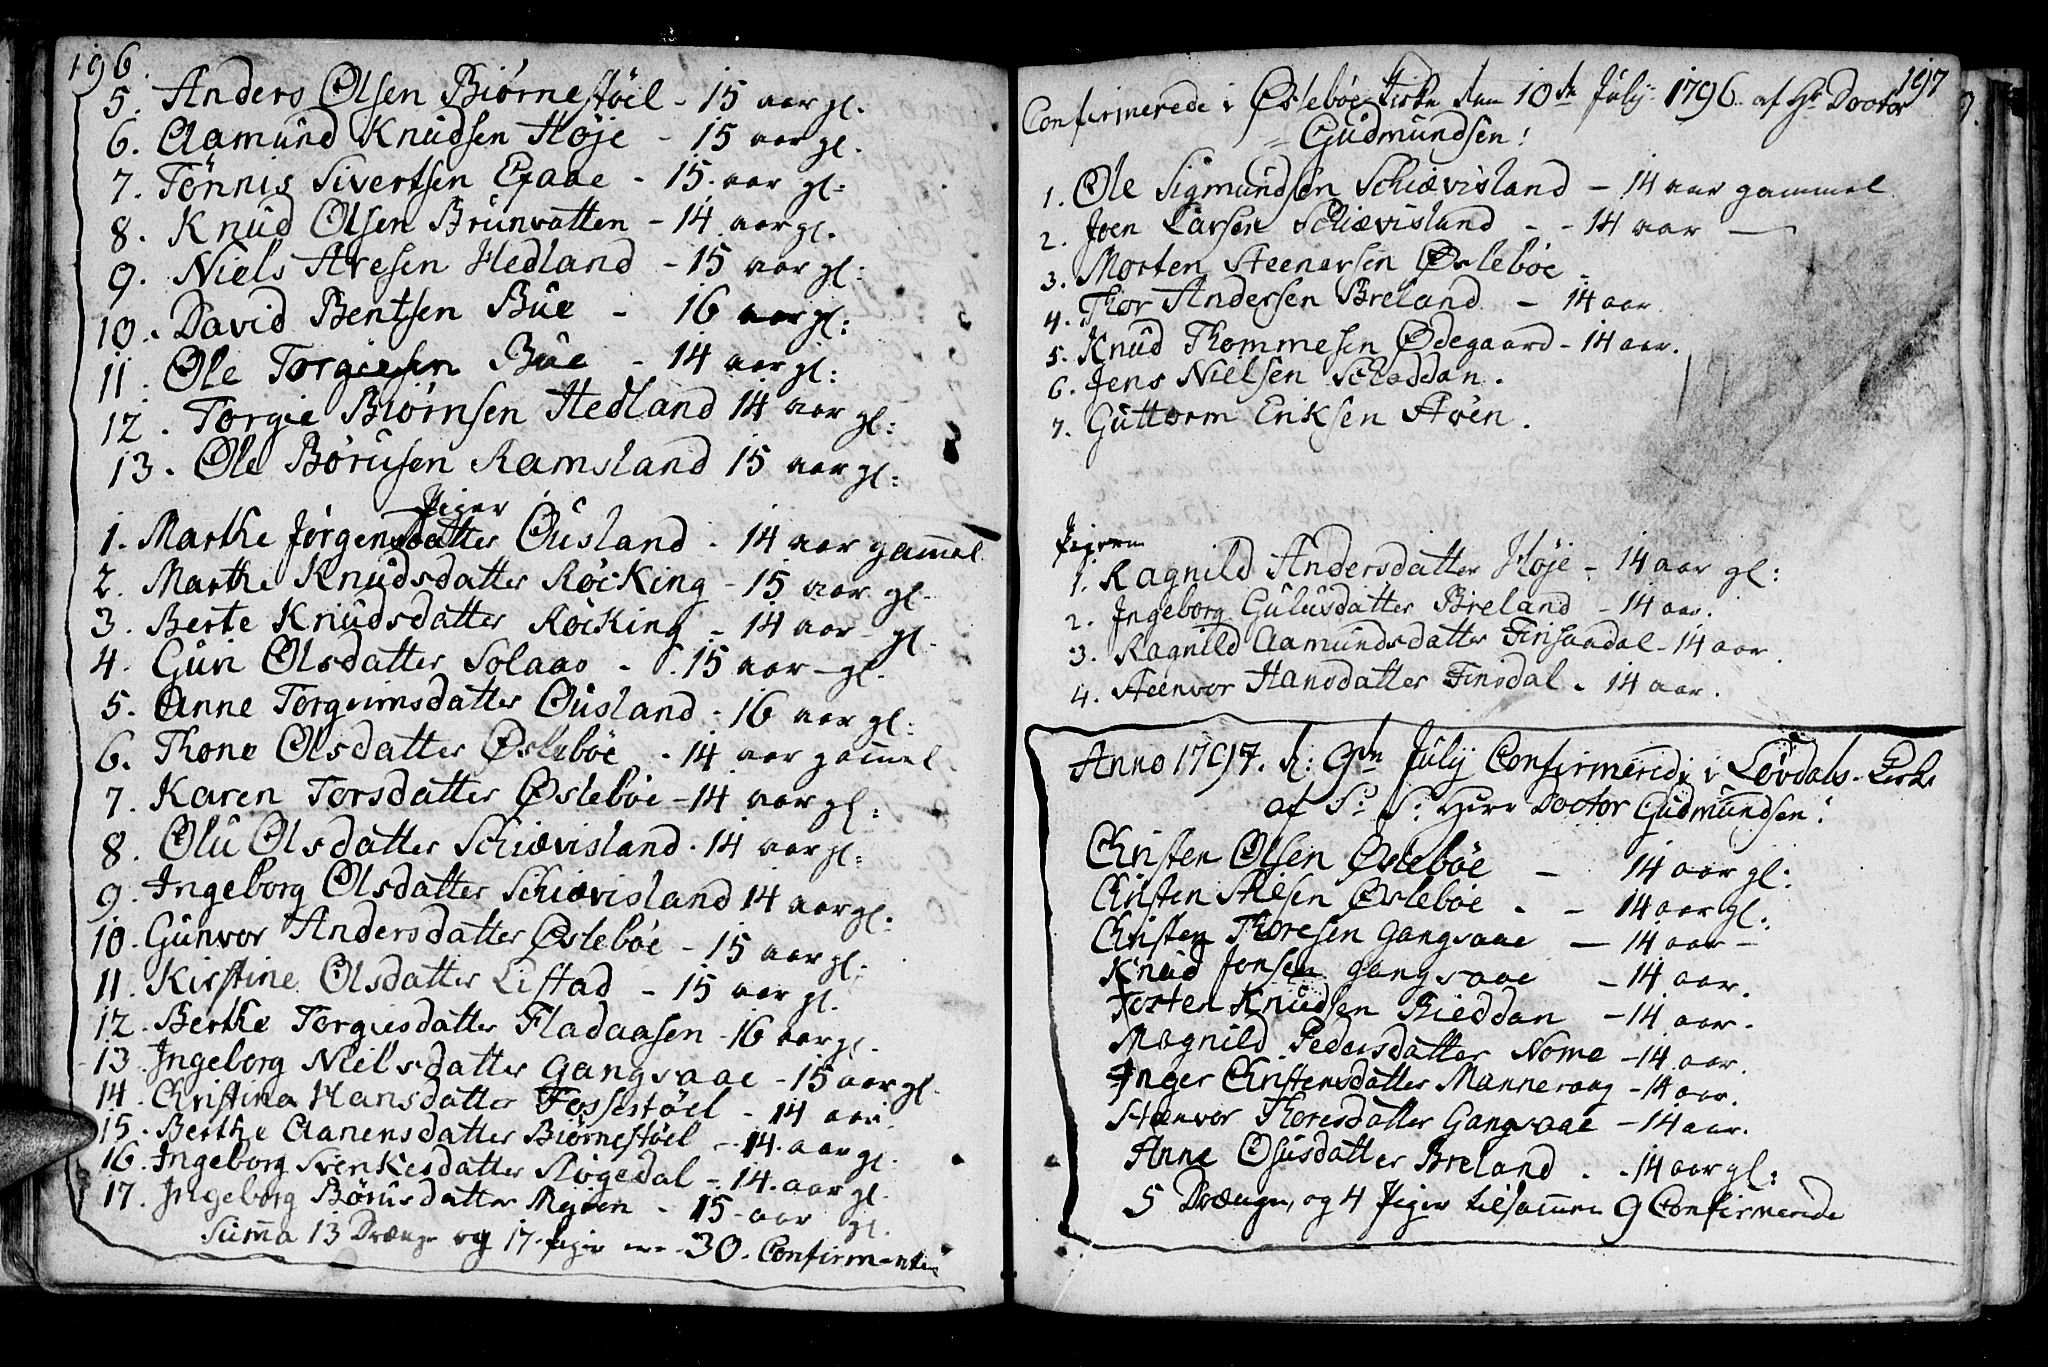 196.
5. Anders Olsen Biørnestöel - 15 aar gl.
6. Aamund Knudsen Høje - 15 aar gl.
7. Tönnis Sivertsen Efaae - 15. aar gl:
8. Knud Olsen Brunvatten - 14 aar gl.
9. Niels Aresen Hedland - 15 aar gl:
10. David Bentsen Bue - 16 aar gl:
11. Ole Torgiesen Bue - 14 aar gl:
12. Torgie Biørnsen Hedland 14 aar gl:
13. Ole Børusen Ramsland 15 aar gl:
Piger
1. Marthe Jørgensdatter Ousland - 14 aar gammel
2. Marthe Knudsdatter Røcking - 15 aar gl.
3. Berte Knudsdatter Røcking - 14 aar gl.
4. Guri Olsdatter Solaas - 15 aar - gl.
5. Anne Torgrimsdatter Ousland - 16 aar gl:
6. Thone Olsdatter Øslebøe - 14 aar gammel
7. Karen Torsdatter Øslebøe - 14 aar gl:
8. Olu Olsdatter Schiævisland. 14 aar gl:
9. Ingeborg Olsdatter Schiævisland 14 aar gl:
10. Gunvor Andersdatter Øslebøe - 15 aar gl:
11. Kirstine Olsdatter Listad - 15 aar gl.
12. Berthe Torgiesdatter Fladaasen - 16 aar gl.
13. Ingeborg Nielsdatter Gangsaae - 15 aar gl.
14. Christina Hansdatter Fossestøel - 14 aar.
15. Berthe Aanensdatter Biørnestøel - 14. aar gl:
16. Ingeborg Svenkesdatter Støgedal - 14. aar gl.
17. Ingeborg Börusdatter Mejoen - 15 - aar gl.
Sum̄a 13 Drænge og 17. piger er - 30. Confirmenter
197
Confirmerede i Øslebøe Kirke den 10de July 1796. af Hr Doctor
Gudmundsen!
1. Ole Sigmundsen Schiævisland - 14 aar gammel
2. Joen Larsen Schiævisland - - 14 aar —
3. Morten Steenersen Øslebøe -
4. Thor Andersen Breland - 14 aar
5. Knud Thommesen Ødegaard - 14 aar.
6. Jens Nielsen Scheddan.
7. Guttorm Eriksen Støen.
Pigerne
1. Ragnild Andersdatter Høje - 14 aar gl:
2. Ingeborg Gulusdatter Breland - 14 aar.
3. Ragnild Aamundsdatter Finsaadal - 14 aar.
4. Steenvor Hansdatter Finsdal. 14 aar.
Anno 1797. d: 9de July Confirmerede i Løvdals - Kirke
af S: S: Herr Doctor Gudmundsen!
Christen Olsen Øslebøe - 14 aar gl:
Christen Alesen Øslebøe. - 14 aar gl:
Christen Thoresen Gangsaae — 14 aar -
Knud Jonsen gangsaae - 14 aar.
Torten Knudsen Kieddan - 14 aar.
Magnild Pedersdatter Nome - 14 aar.
Inger Christensdatter Manneraag - 14 aar.
Stænvor Thoresdatter Gangsaae - 14 aar.
Anne Osusdatter Breland. - 14 aar gl:
5 Drænge, og 4 Piger tilsam̄en 9 Confirmerede